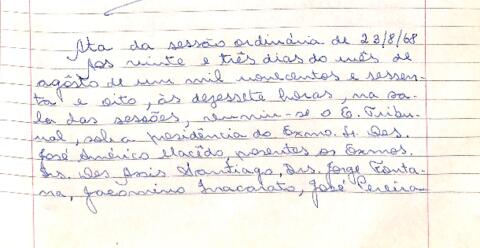 Ata da sessão ordinária de 23/8/68
Aos vinte e três dias do mês de
agôsto de um mil novecentos e sessen-
ta e oito, às dezessete horas, na sa-
la das sessões, reuniu-se o E. Tribu-
nal, sob a presidência do Exmo. Sr. Des.
José Américo Macêdo, presentes os Exmos.
Srs. Des. Assis Santiago, Drs. Jorge Fonta-
na, Jacomino Inacarato, José Pereira